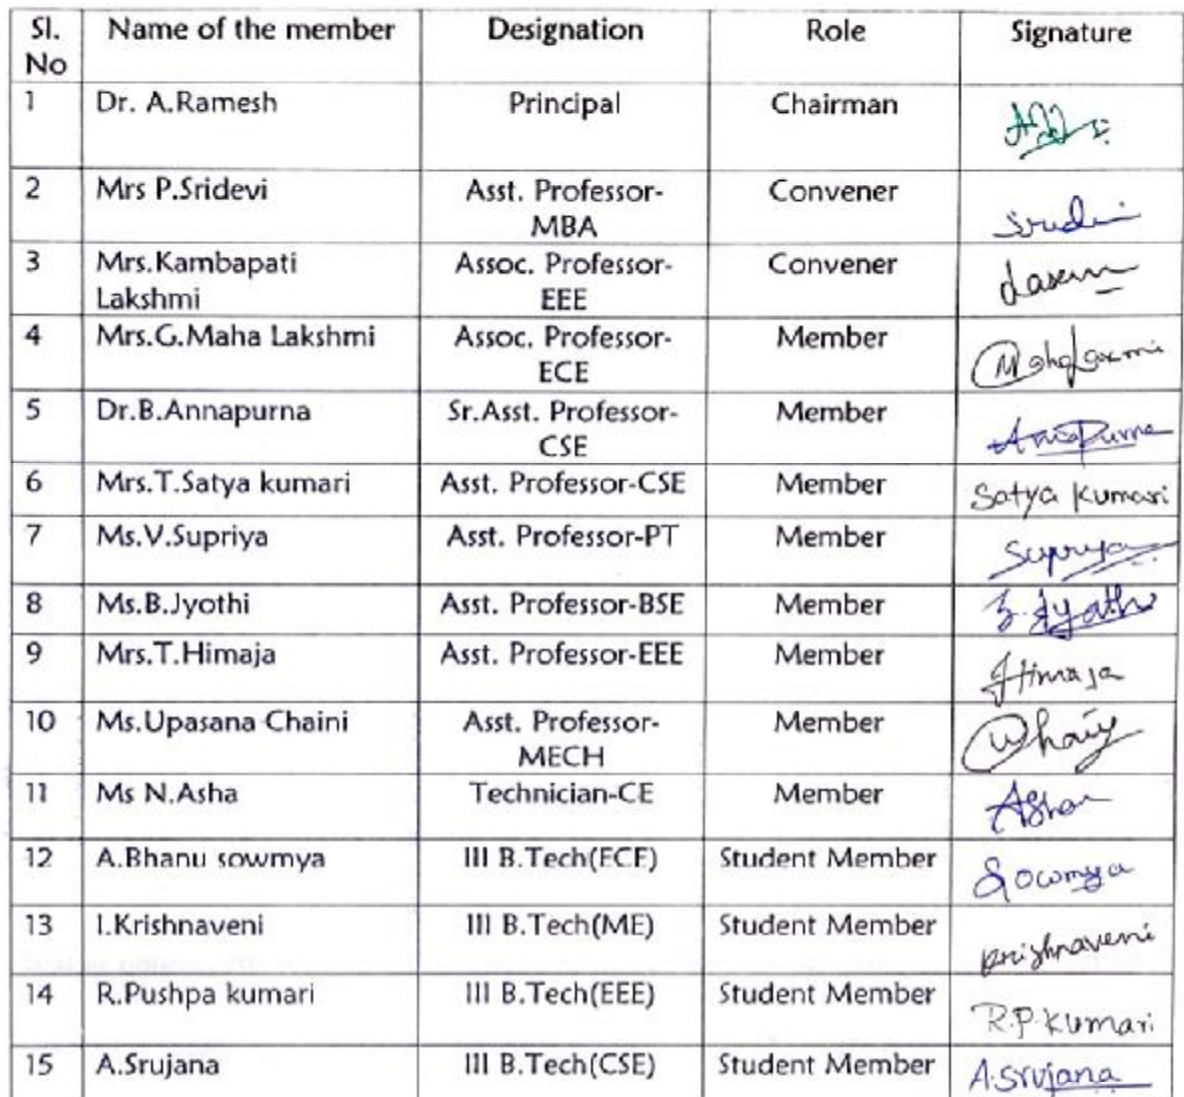 Sl. No Name of the member Designation Role Signature
1 Dr. A.Ramesh Principal Chairman
2 Mrs P.Sridevi Asst. Professor- MBA Convener Sridevi
3 Mrs.Kambapati Lakshmi Assoc. Professor- EEE Convener
4 Mrs.G.Maha Lakshmi Assoc. Professor- ECE Member Mahalaxmi
5 Dr.B.Annapurna Sr.Asst. Professor- CSE Member Annapurna
6 Mrs.T.Satya kumari Asst. Professor-CSE Member Satya Kumari
7 Ms.V.Supriya Asst. Professor-PT Member Supriya
8 Ms.B.Jyothi Asst. Professor-BSE Member B.Jyothi
9 Mrs.T.Himaja Asst. Professor-EEE Member Himaja
10 Ms.Upasana Chaini Asst. Professor- MECH Member
11 Ms N.Asha Technician-CE Member Asha
12 A.Bhanu sowmya III B.Tech(ECE) Student Member Sowmya
13 I.Krishnaveni III B.Tech(ME) Student Member Krishnaveni
14 R.Pushpa kumari III B.Tech(EEE) Student Member R.P.Kumari
15 A.Srujana III B.Tech(CSE) Student Member A.Srujana